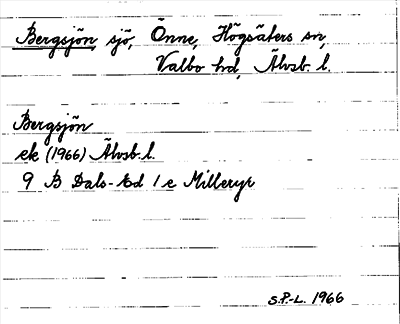 Bergsjön, sjö, Önne, Högsäters sn,
Valbo hd, Älvsb. l.
Bergsjön
ek (1966) Älvsb. l.
9 B Dals-Ed 1 e Milleryr
S.P.-L. 1966